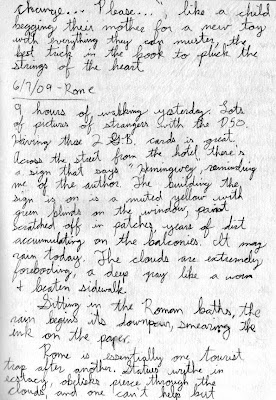 change... Please... like a child
begging their mother for a new toy
with everything they can muster, the
best trick in the book to pluck the
strings of the heart
6/7/09 - Rome
9 hours of walking yesterday. Lots
of pictures of strangers with the D50.
Having those 2 GB cards is great.
Across the street from the hotel there's
a sign that says "Hemingway, reminding
me of the author. The building the
sign is on is a muted yellow with
green blinds on the window, paint
scratched off in patches, years of dirt
accumulating on the balconies. It may
rain today. The clouds are extremely
foreboding, a deep gray like a worn
+ beaten sidewalk.
Sitting in the Roman baths, the
rain begins its downpour, smearing the
ink on the paper.
Rome is essentially one tourist
trap after another. Statues writhe in
ecstacy, obelisks pierce through the
clouds, and one can't help but